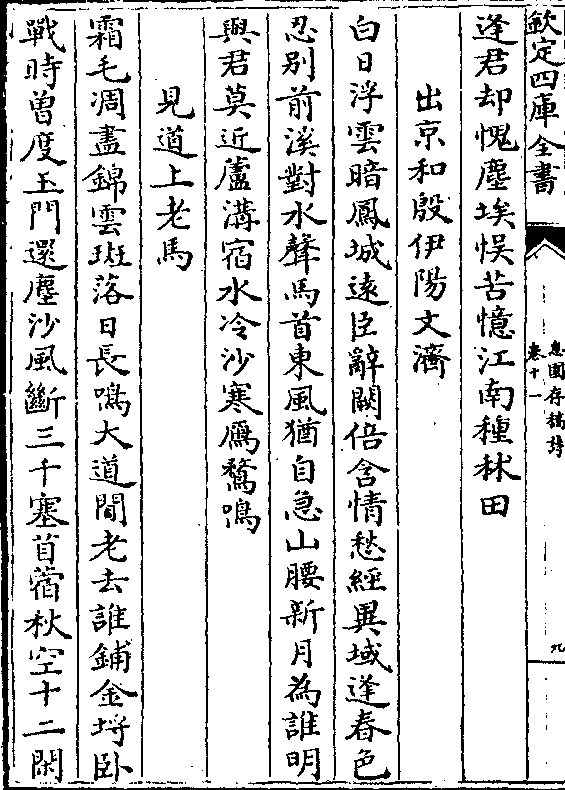 欽定四庫全書
息園存稿詩
卷十一
九
逢君却愧塵埃悞苦憶江南種秫田
出京和殷伊陽文濟
白日浮雲暗鳳城逺臣辭闕倍含情愁經異域逢春色
忍别前溪對水聲馬首東風猶自急山腰新月為誰明
與君莫近廬溝宿水冷沙寒鴈鶩鳴
見道上老馬
霜毛凋盡錦雲斑落日長鳴大道間老去誰鋪金埒卧
戰時曽度玉門還塵沙風斷三千塞苜蓿秋空十二閑